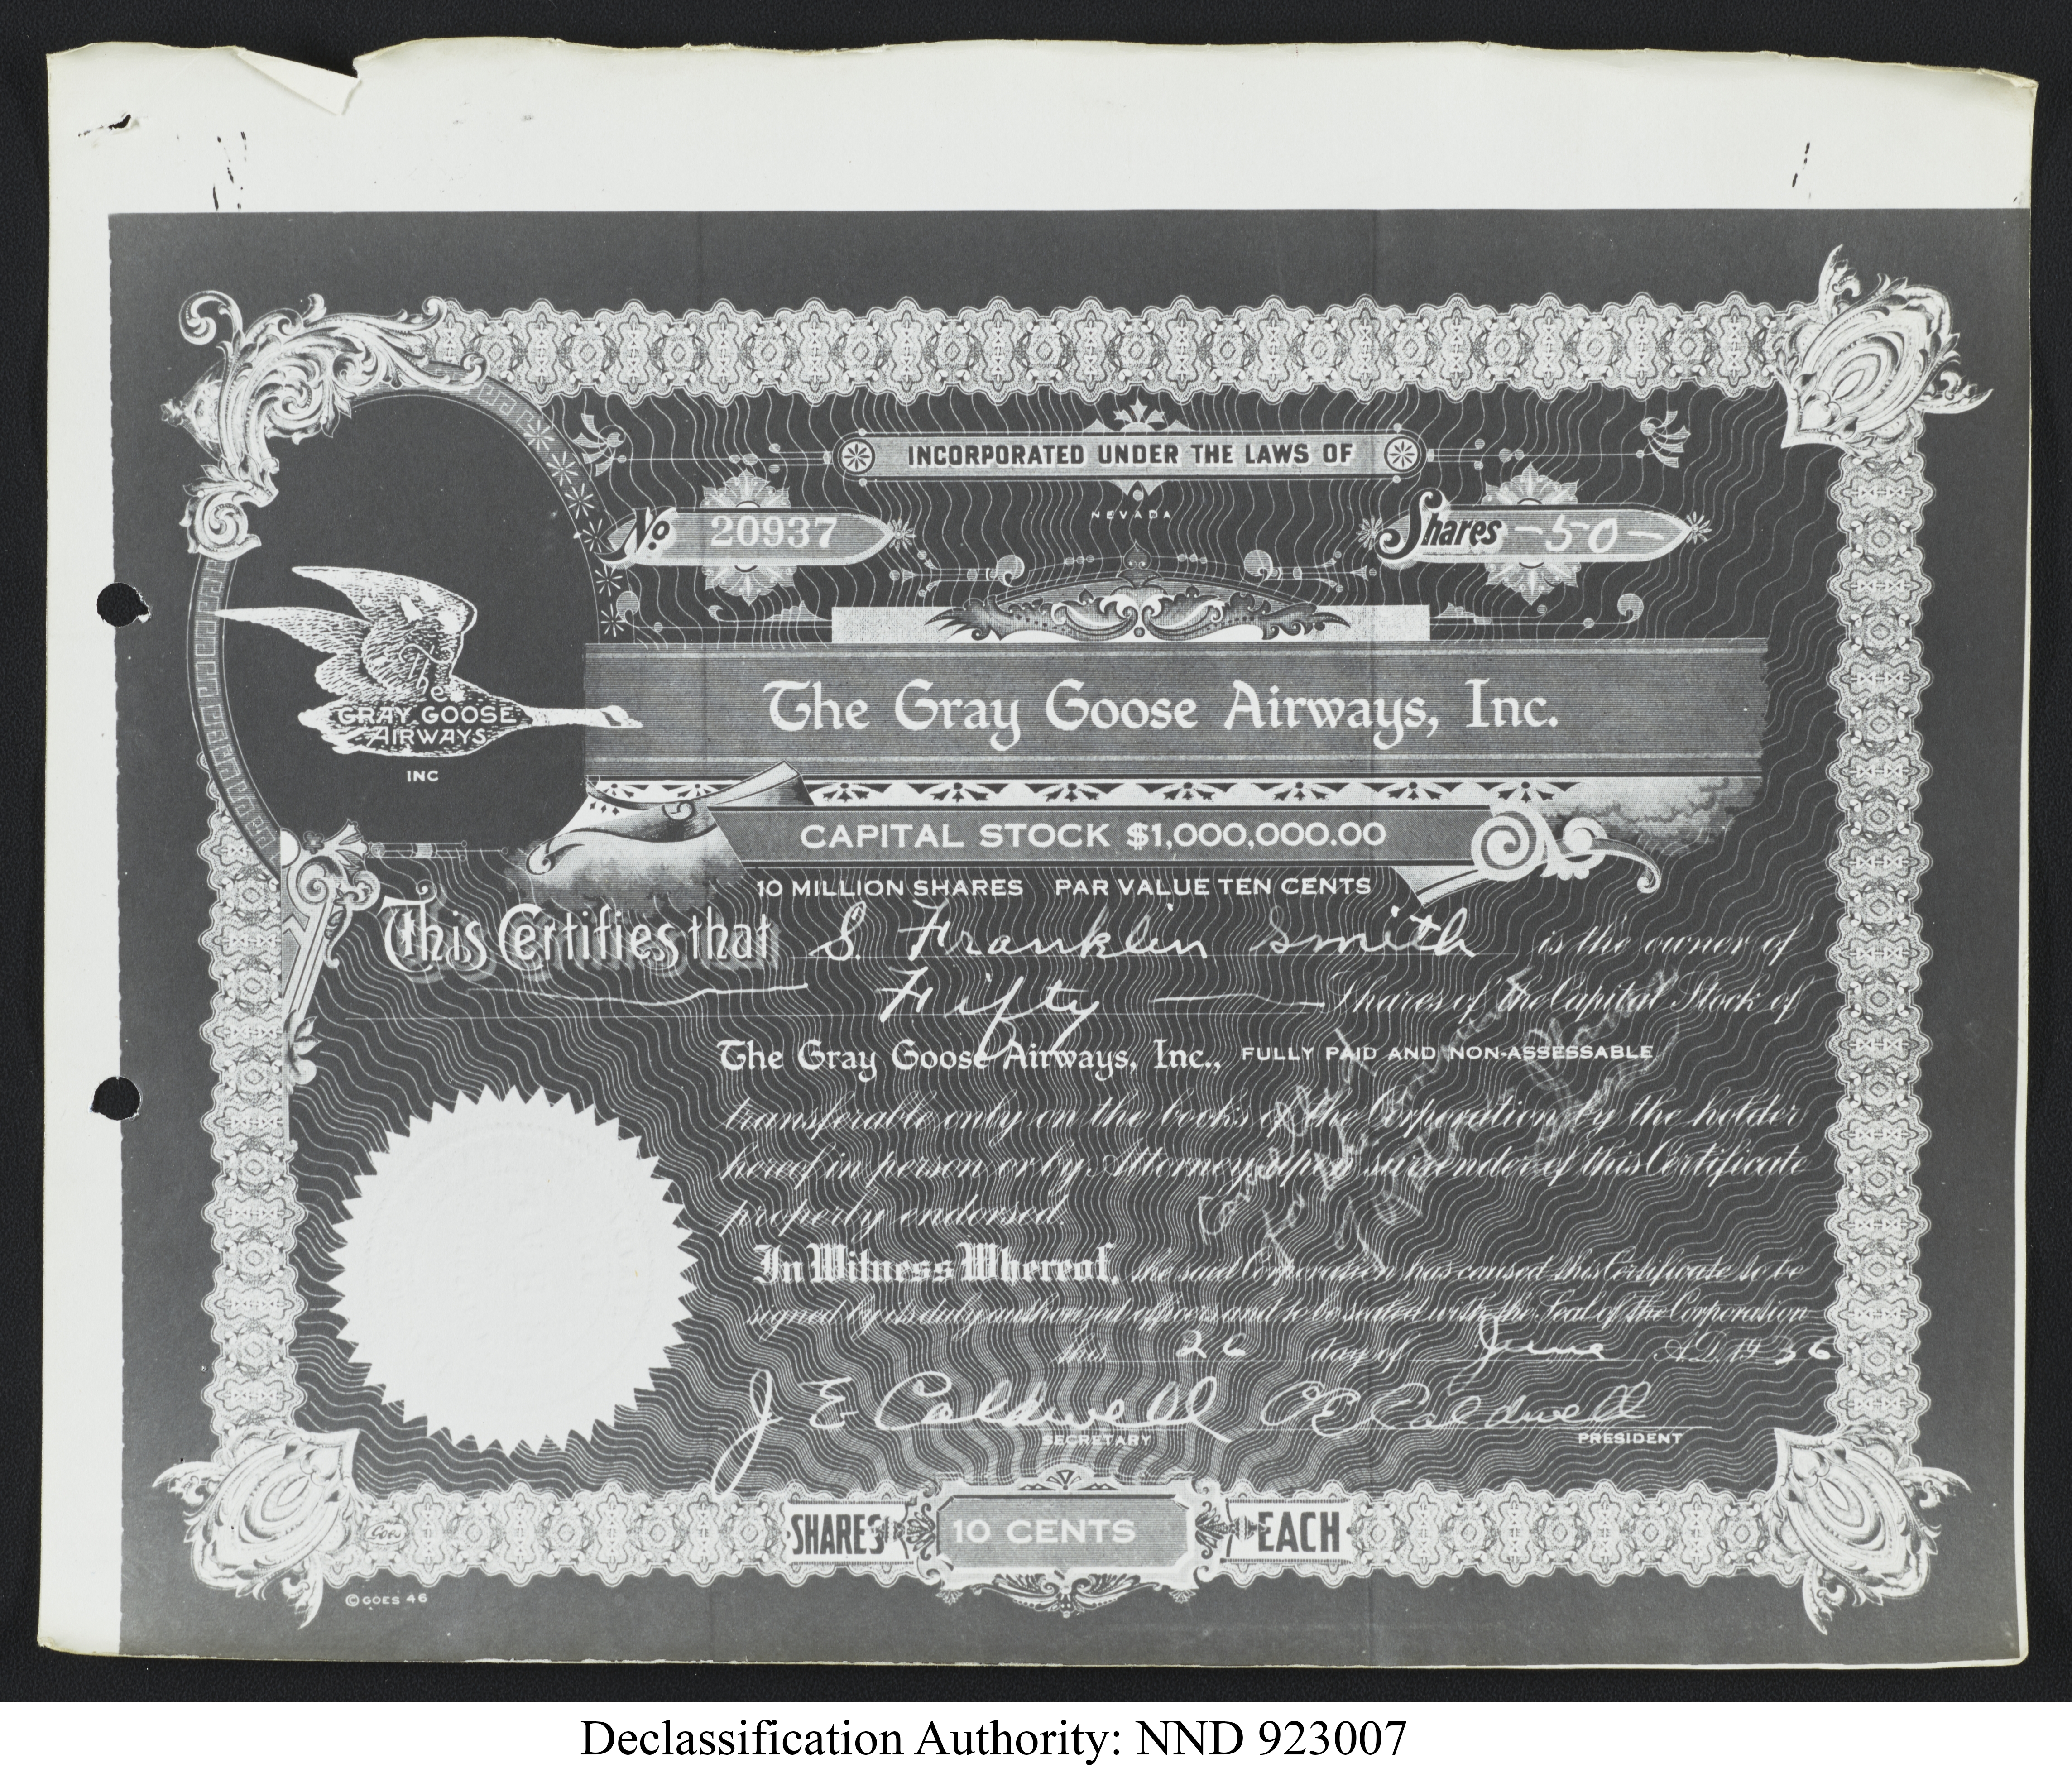 INCORPORATED UNDER THE LAWS OF
NEVADA
No. 20937
Shares -50-
The
GRAY GOOSE
AIRWAYS
INC
The Gray Goose Airways, Inc.
CAPITAL STOCK $1,000,000.00
10 MILLION SHARES PAR VALUE TEN CENTS
This Certifies that S. Franklin Smith is the owner of
Fifty Shares of the Capital Stock of
The Gray Goose Airways, Inc., FULLY PAID AND NON-ASSESSABLE
transferable only on the books of the Corporation by the holder
hereof in person or by Attorney upon surrender of this Certificate
properly endorsed.
In Witness Whereof, the said Corporation has caused this Certificate to be
signed by its duly authorized officers and to be sealed with the Seal of the Corporation
this 26 day of June A.D. 1936
J E Caldwell
SECRETARY
PRESIDENT
SHARES 10 CENTS EACH
© GOES 46
Declassification Authority: NND 923007